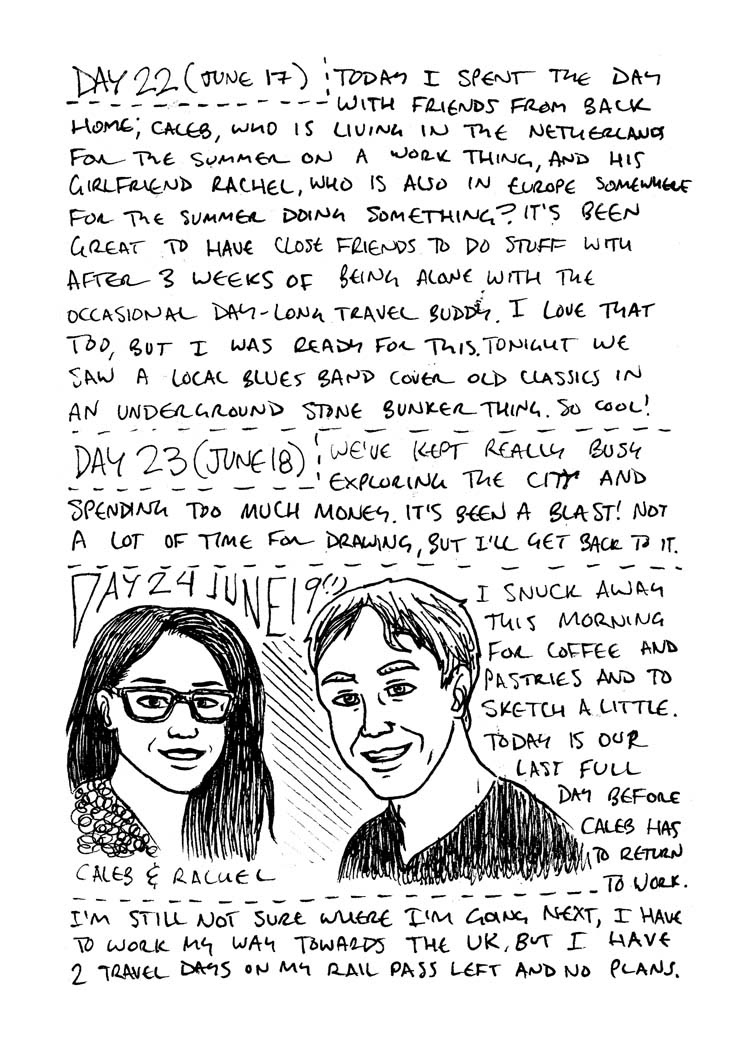 DAY 22 (JUNE 17) TODAY I SPENT THE DAY
WITH FRIENDS FROM BACK
HOME; CALEB, WHO IS LIVING IN THE NETHERLANDS
FOR THE SUMMER ON A WORK THING, AND HIS
GIRLFRIEND RACHEL, WHO IS ALSO IN EUROPE SOMEWHERE
FOR THE SUMMER DOING SOMETHING? IT'S BEEN
GREAT TO HAVE CLOSE FRIENDS TO DO STUFF WITH
AFTER 3 WEEKS OF BEING ALONE WITH THE
OCCASIONAL DAY-LONG TRAVEL BUDDY. I LOVE THAT
TOO, BUT I WAS READY FOR THIS. TONIGHT WE
SAW A LOCAL BLUES BAND COVER OLD CLASSICS IN
AN UNDERGROUND STONE BUNKER THING. SO COOL!
DAY 23 (JUNE 18) WE'VE KEPT REALLY BUSY
EXPLORING THE CITY AND
SPENDING TOO MUCH MONEY. IT'S BEEN A BLAST! NOT
A LOT OF TIME FOR DRAWING, BUT I'LL GET BACK TO IT.
DAY 24 JUNE 19(!)
I SNUCK AWAY
THIS MORNING
FOR COFFEE AND
PASTRIES AND TO
SKETCH A LITTLE.
TODAY IS OUR
LAST FULL
DAY BEFORE
CALEB HAS
TO RETURN
TO WORK.
CALEB & RACHEL
I'M STILL NOT SURE WHERE I'M GOING NEXT, I HAVE
TO WORK MY WAY TOWARDS THE UK, BUT I HAVE
2 TRAVEL DAYS ON MY RAIL PASS LEFT AND NO PLANS.